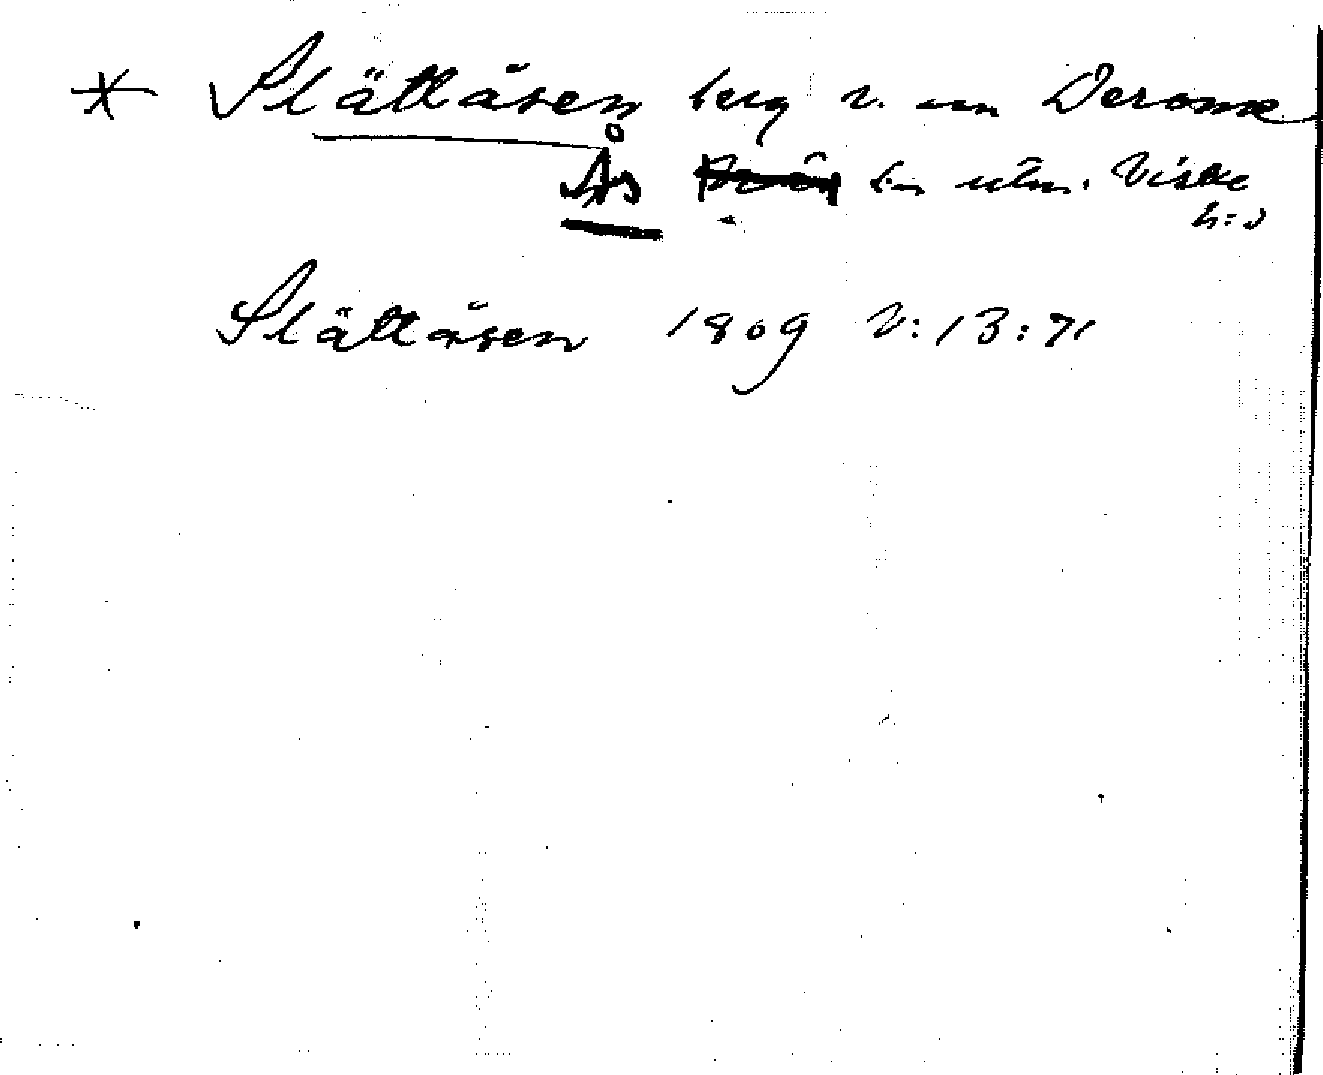 * Slättåsen berg v. om Derome
Ås sn Viske
h:d
Slättåsen 1809 V:13:71